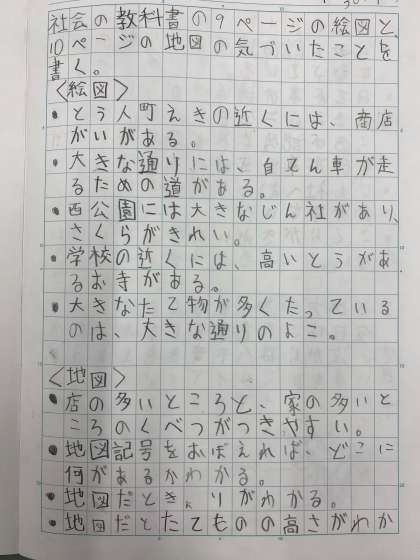 社会の教科書の9ページの絵図と、
10ページの地図の気づいたことを
書く。
〈絵図〉
•とう人町えきの近くには、商店
がいがある。
•大きな通りには、自てん車が走
るための道がある。
•西公園には大きなじん社があり、
さくらがきれい。
•学校の近くには、高いとうがあ
るお寺がある。
•大きなたて物が多くたっている
のは、大きな通りのよこ。
〈地図〉
•店の多いところと、家の多いと
ころのくべつがつきやすい。
•地図記号をおぼえれば、どこに
何があるかわかる。
•地図だときょりがわかる。
•地図だとたてものの高さがわか